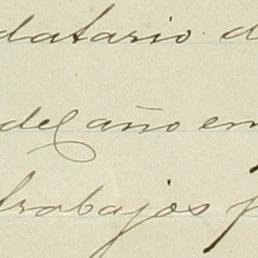 datario d
del año en
trabajos p